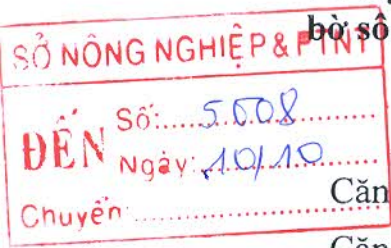 bờ sô
SỞ NÔNG NGHIỆP & PTNT
ĐẾN Số:.....5508.....
Ngày:.10/10.....
Chuyển:.....
Căn
Căn